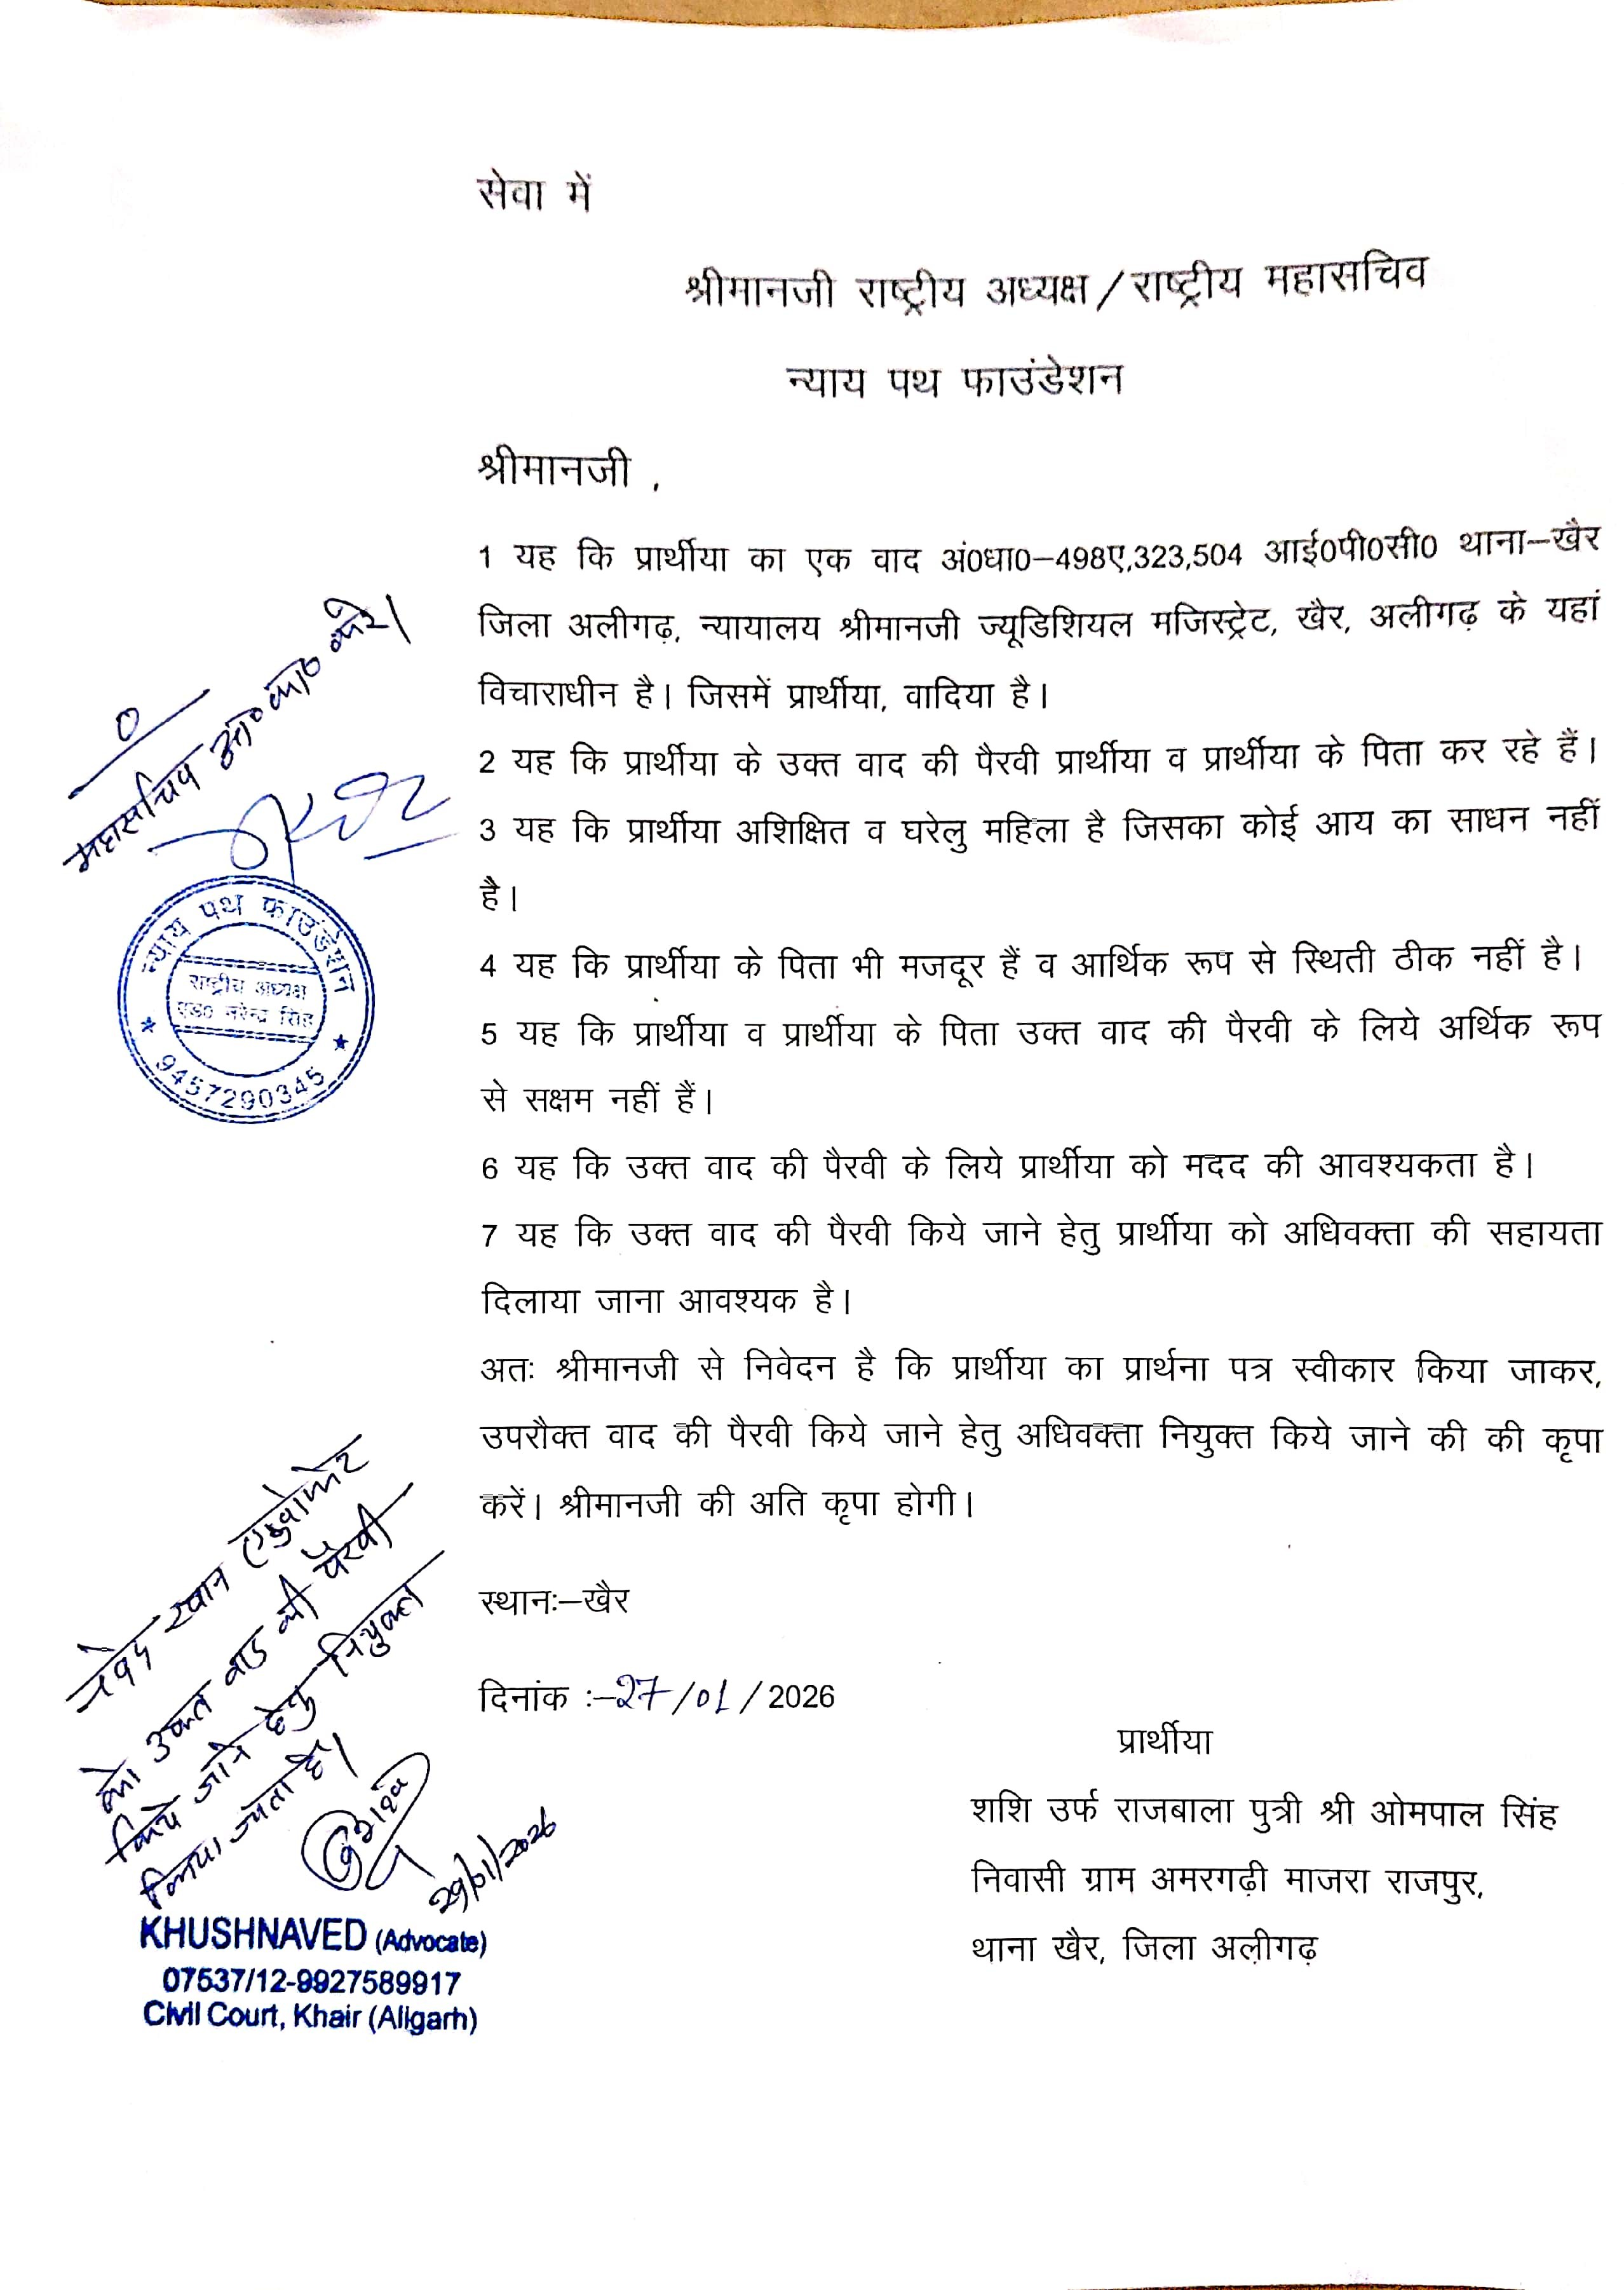 सेवा में
श्रीमानजी राष्ट्रीय अध्यक्ष/राष्ट्रीय महासचिव
न्याय पथ फाउंडेशन
श्रीमानजी ,
1 यह कि प्रार्थीया का एक वाद अं0धा0–498ए,323,504 आई0पी0सी0 थाना–खैर
जिला अलीगढ़, न्यायालय श्रीमानजी ज्यूडिशियल मजिस्ट्रेट, खैर, अलीगढ़ के यहां
विचाराधीन है। जिसमें प्रार्थीया, वादिया है।
2 यह कि प्रार्थीया के उक्त वाद की पैरवी प्रार्थीया व प्रार्थीया के पिता कर रहे हैं।
3 यह कि प्रार्थीया अशिक्षित व घरेलु महिला है जिसका कोई आय का साधन नहीं
है।
4 यह कि प्रार्थीया के पिता भी मजदूर हैं व आर्थिक रूप से स्थिती ठीक नहीं है।
5 यह कि प्रार्थीया व प्रार्थीया के पिता उक्त वाद की पैरवी के लिये अर्थिक रूप
से सक्षम नहीं हैं।
6 यह कि उक्त वाद की पैरवी के लिये प्रार्थीया को मदद की आवश्यकता है।
7 यह कि उक्त वाद की पैरवी किये जाने हेतु प्रार्थीया को अधिवक्ता की सहायता
दिलाया जाना आवश्यक है।
अतः श्रीमानजी से निवेदन है कि प्रार्थीया का प्रार्थना पत्र स्वीकार किया जाकर,
उपरौक्त वाद की पैरवी किये जाने हेतु अधिवक्ता नियुक्त किये जाने की की कृपा
करें। श्रीमानजी की अति कृपा होगी।
स्थानः–खैर
दिनांक :–27/01/2026
प्रार्थीया
शशि उर्फ राजबाला पुत्री श्री ओमपाल सिंह
निवासी ग्राम अमरगढ़ी माजरा राजपुर,
थाना खैर, जिला अलीगढ़
महासचिव आ० का० करे।
न्याय पथ फाउंडेशन
राष्ट्रीय अध्यक्ष
एड० नरेन्द्र सिंह
9457290345
नवेद खान एडवोकेट
को उक्त वाद की पैरवी
किये जाने हेतु नियुक्त
किया जाता है।
29/01/2026
KHUSHNAVED (Advocate)
07537/12-9927589917
Civil Court, Khair (Aligarh)